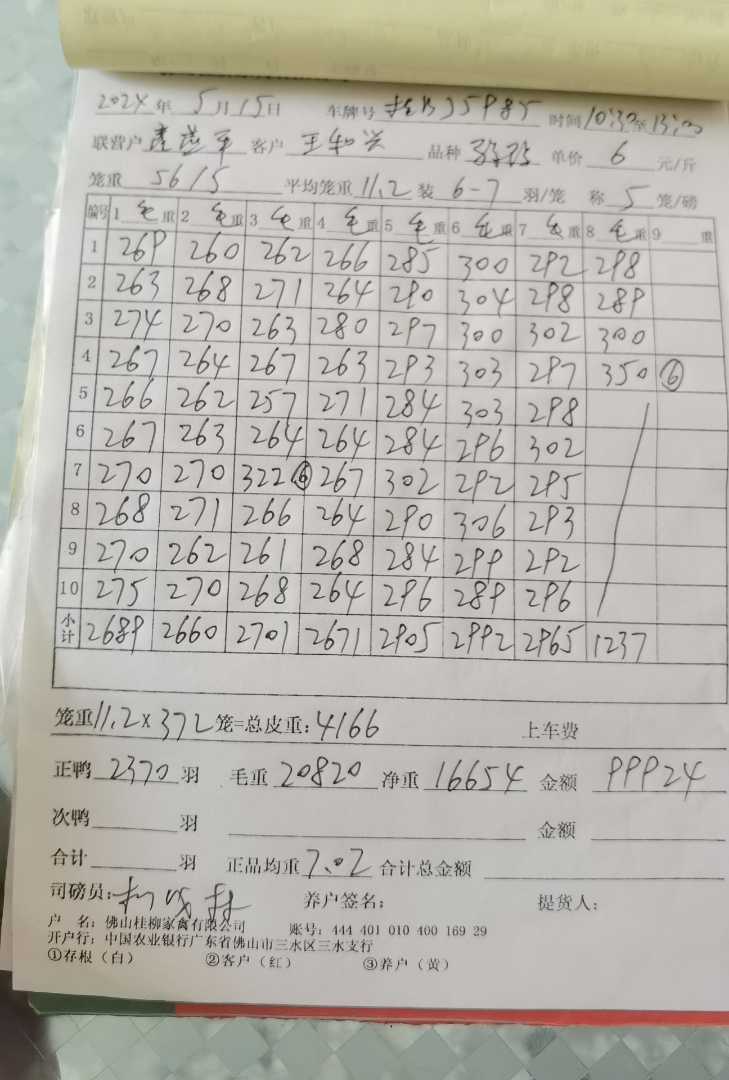 2024年 5月15日 车牌号 35985 时间10:30至13:00
联营户 客户 王和兴 品种 单价 6 元/斤
笼重 56/5 平均笼重11.2 装 6-7 羽/笼 称 5 笼/磅
编号 1 毛重 2 毛重 3 毛重 4 毛重 5 毛重 6 毛重 7 毛重 8 毛重 9 重
1 269 260 262 266 285 300 292 298
2 263 268 271 264 290 304 298 289
3 274 270 263 280 297 300 302 300
4 267 264 267 263 293 303 297 350 ⑥
5 266 262 257 271 284 303 298
6 267 263 264 264 284 296 302
7 270 270 322⑥ 267 302 292 295
8 268 271 266 264 290 306 293
9 270 262 261 268 284 299 292
10 275 270 268 264 296 289 296
小计 2689 2660 2701 2671 2905 2992 2965 1237
笼重11.2×372笼=总皮重:4166 上车费
正鸭 2370 羽 毛重 20820 净重 16654 金额 99924
次鸭 羽 金额
合计 羽 正品均重7.02 合计总金额
司磅员: 养户签名: 提货人:
户 名:佛山桂柳家禽有限公司 账号:444 401 010 400 169 29
开户行:中国农业银行广东省佛山市三水区三水支行
①存根(白) ②客户(红) ③养户(黄)